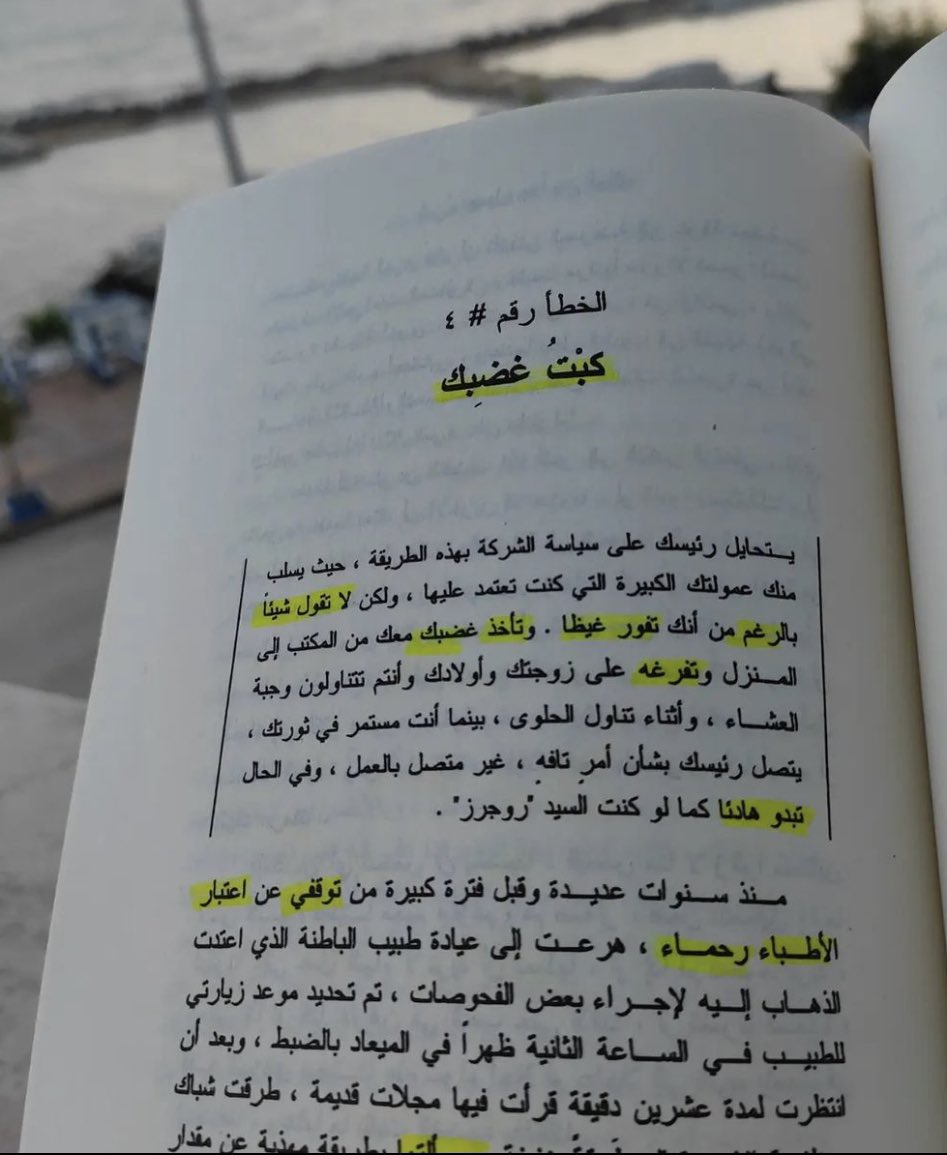 الخطأ رقم # ٤
كبْتُ غضبِك
يتحايل رئيسك على سياسة الشركة بهذه الطريقة ، حيث يسلب
منك عمولتك الكبيرة التي كنت تعتمد عليها ، ولكن لا تقول شيئاً
بالرغم من أنك تفور غيظا . وتأخذ غضبك معك من المكتب إلى
المنزل وتفرغه على زوجتك وأولادك وأنتم تتناولون وجبة
العشاء ، وأثناء تناول الحلوى ، بينما أنت مستمر في ثورتك ،
يتصل رئيسك بشأن أمرٍ تافهٍ ، غير متصل بالعمل ، وفي الحال
تبدو هادئا كما لو كنت السيد "روجرز" .
منذ سنوات عديدة وقبل فترة كبيرة من توقفي عن اعتبار
الأطباء رحماء ، هرعت إلى عيادة طبيب الباطنة الذي اعتدت
الذهاب إليه لإجراء بعض الفحوصات ، تم تحديد موعد زيارتي
للطبيب في الساعة الثانية ظهراً في الميعاد بالضبط ، وبعد أن
انتظرت لمدة عشرين دقيقة قرأت فيها مجلات قديمة ، طرقت شباك
بطريقة مهذبة عن مقدار